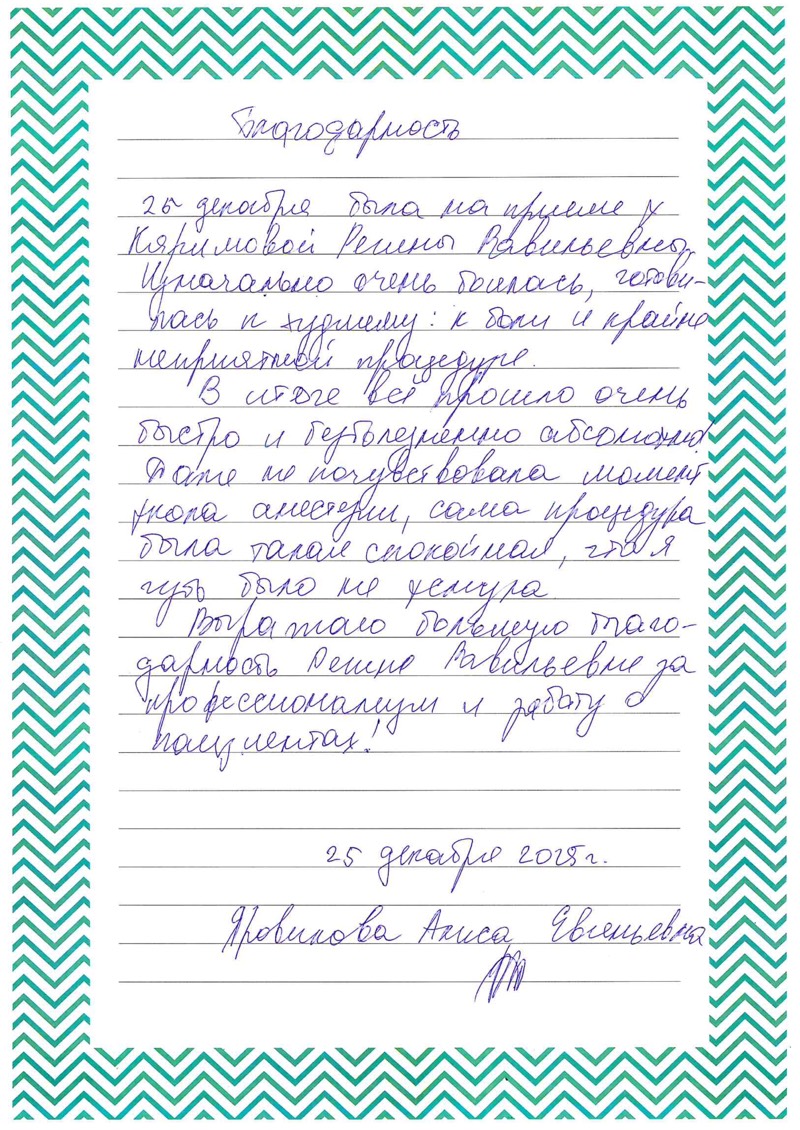 Благодарность
25 декабря была на приеме у
Каримовой Регины Вавильевны.
Изначально очень боялась, готови-
лась к худшему: к боли и крайне
неприятной процедуре.
В итоге всё прошло очень
быстро и безболезненно абсолютно!
Даже не почувствовала момент
укола анестезии, сама процедура
была такая спокойная, что я
чуть было не уснула.
Выражаю большую благо-
дарность Регине Вавильевне за
профессионализм и заботу о
пациентах!
25 декабря 2025 г.
Яровикова Алиса Евгеньевна